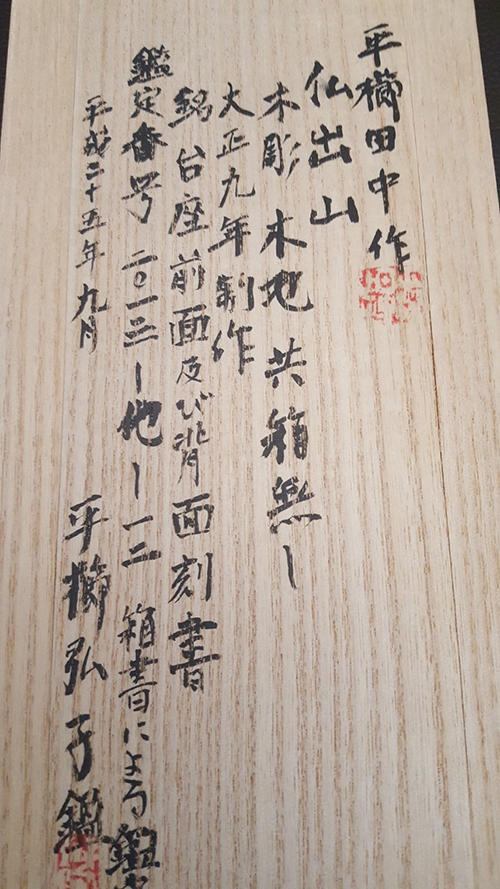 平櫛田中作
仏出山
木彫 木地 共箱無し
大正九年制作
銘台座前面及び背面刻書
鑑定番号 二〇一三ー他ー一二 箱書による鑑定
平成二十五年九月
平櫛弘子鑑